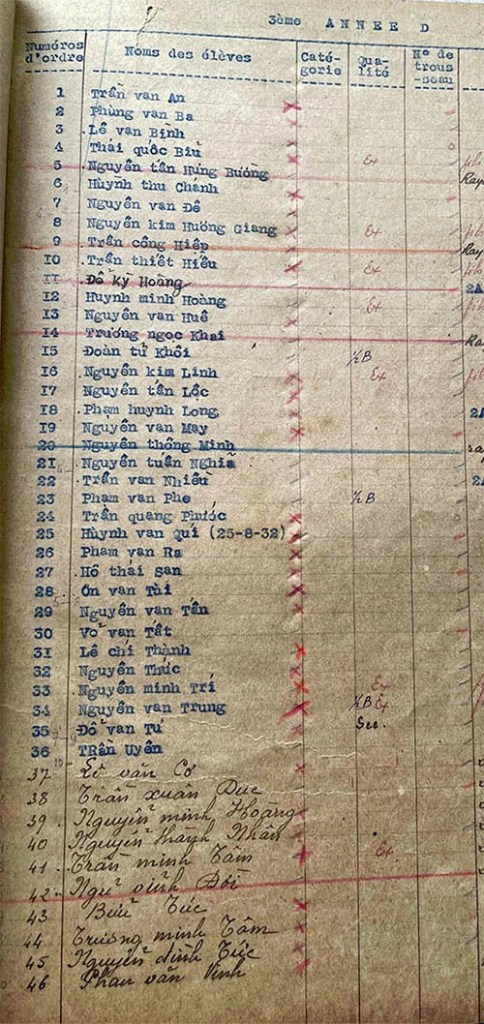 3ème ANNEE D
Numéros d'ordre Noms des élèves Caté- gorie Qua- lité N° de trous -seau
1 Trần van An
2 Phùng van Ba
3 Lê van Bình
4 Thái quốc Bìu
5 Nguyễn tấn Hưng Bường Ex
6 Huỳnh thu Chánh Ray
7 Nguyễn van Đê
8 Nguyễn kim Hương Giang Ex
9 Trần công Hiệp Ray
10 Trần thiết Hiếu Ex
11 Đỗ kỳ Hoàng 2A
12 Huynh minh Hoàng Ex
13 Nguyễn van Huê
14 Trương ngọc Khai
15 Đoàn tử Khôi ½B
16 Nguyễn kim Linh Ex
17 Nguyễn tấn Lộc
18 Phạm huynh Long 2A
19 Nguyễn van May
20 Nguyễn thông Minh
21 Nguyễn tuấn Nghĩa
22 Trần van Nhiều
23 Phạm van Phe ½B
24 Trần quang Phước
25 Huỳnh van Quí (25-8-32)
26 Phạm van Ra
27 Hồ thái San
28 Ôn van Tài
29 Nguyễn van Tấn
30 Võ van Tất
31 Lê chí Thành
32 Nguyễn Thức
33 Nguyễn minh Trí Ex
34 Nguyễn van Trung ½B Ex
35 Đỗ van Tư Sec.
36 TRần Uyển
37 Lê văn Cơ
38 Trần xuân Đức
39 Nguyễn minh Hoàng
40 Nguyễn thành Nhân
41 Trần minh Tâm Ex
42 Ngữ vĩnh Đời
43 Bửu Tức
44 Trương minh Tâm
45 Nguyễn đình Tức
46 Phan văn Vinh